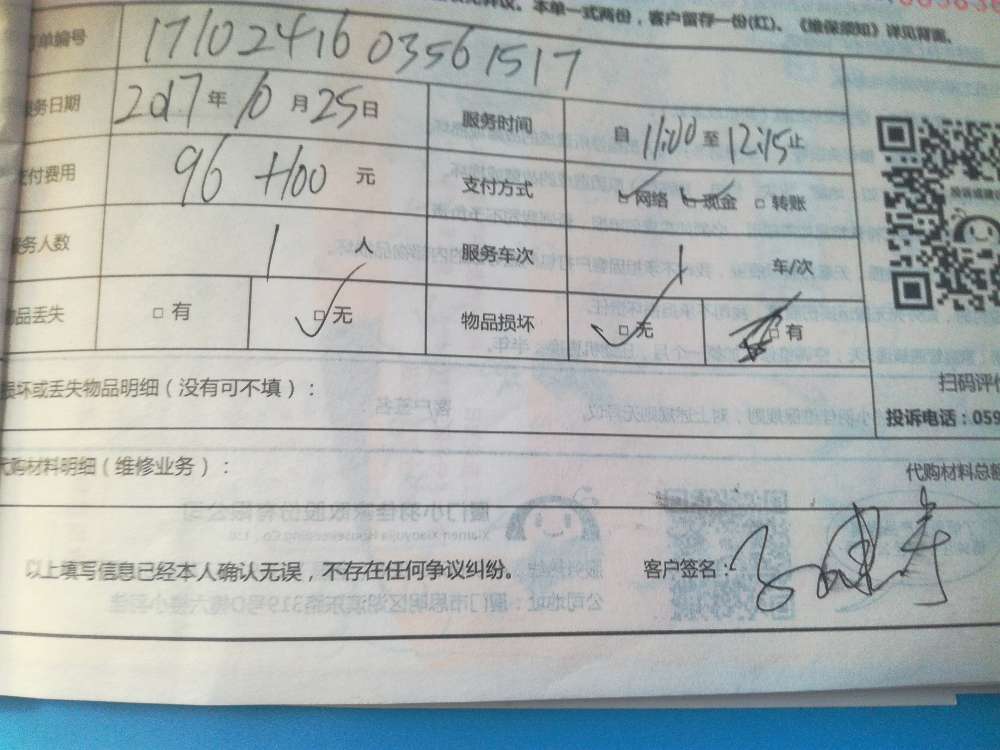 本单一式两份，客户留存一份(红)。《维保须知》详见背面。
单编号 17102416 03561517
务日期 2017年10月25日 服务时间 自 11:00 至 12:15 止
支付费用 96 +100 元 支付方式 网络 现金 □ 转账
服务人数 1 人 服务车次 1 车/次
物品丢失 □ 有 □ 无 物品损坏 □ 无 □ 有
损坏或丢失物品明细（没有可不填）：
扫码评价
投诉电话：059
代购材料明细（维修业务）：
代购材料总额
以上填写信息已经本人确认无误，不存在任何争议纠纷。 客户签名：